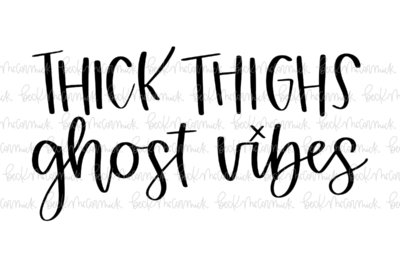 THICK THIGHS
ghost vibes